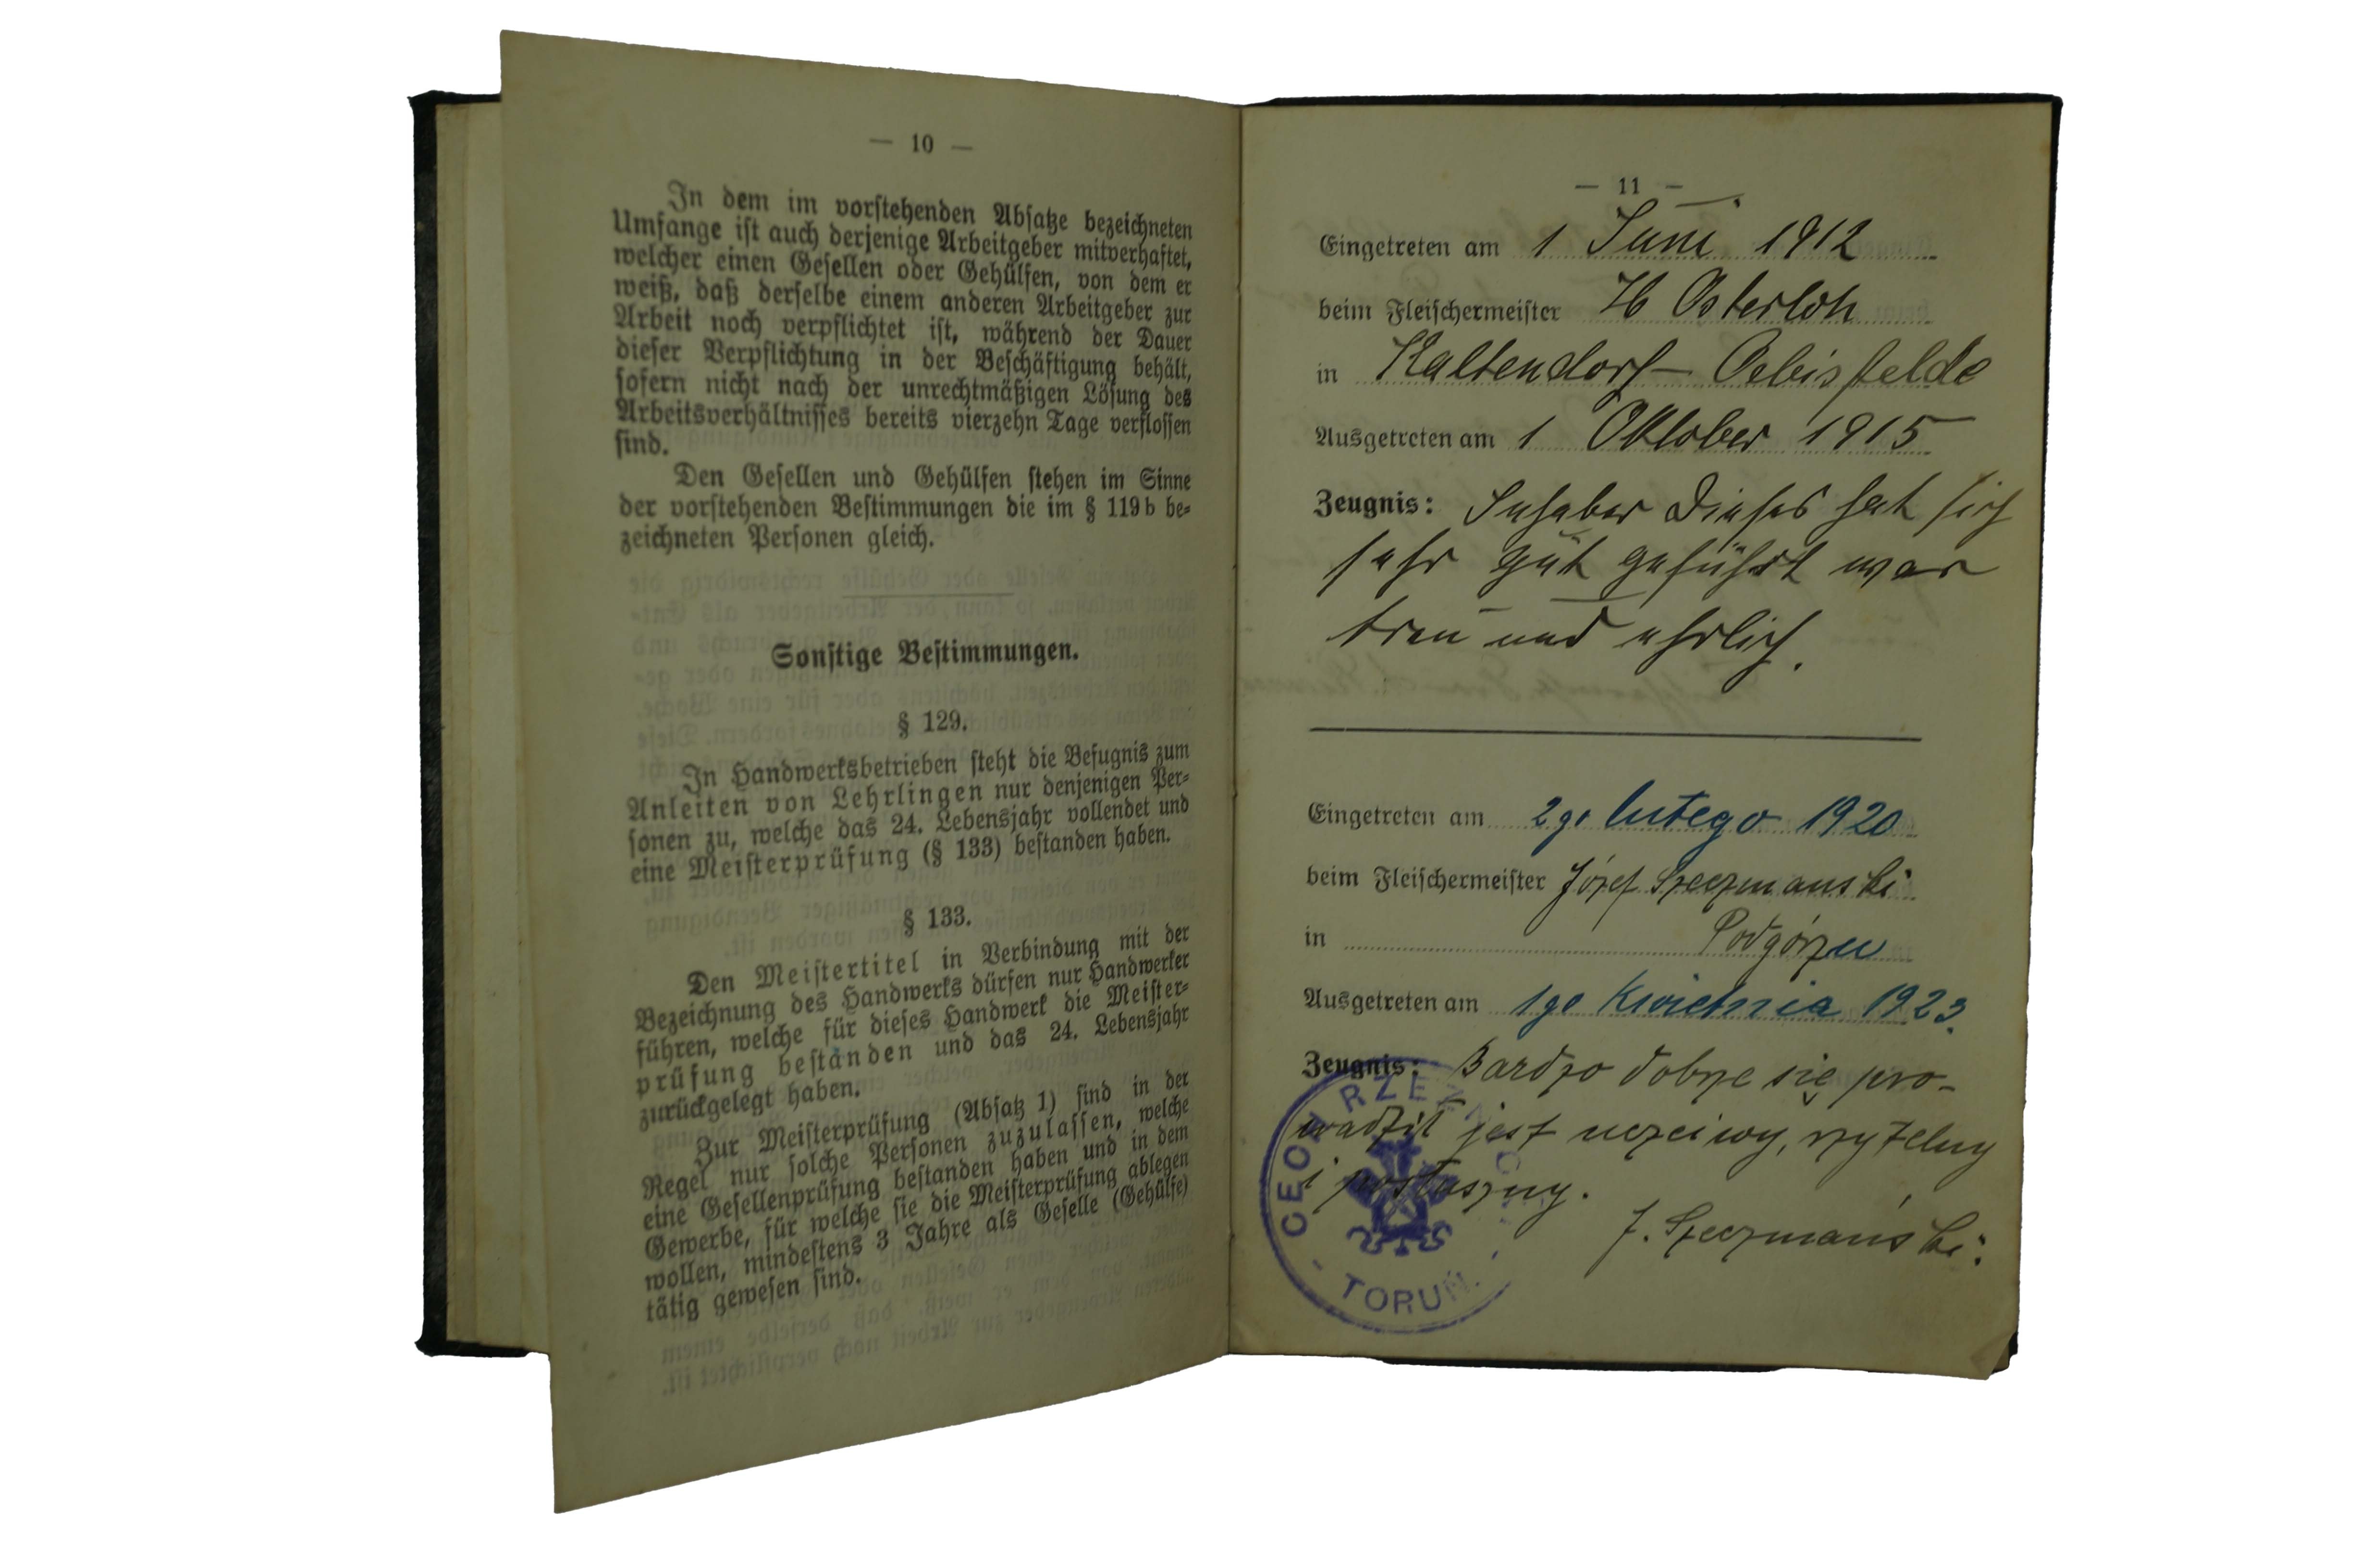 — 10 —
In dem im vorstehenden Absatze bezeichneten
Umfange ist auch derjenige Arbeitgeber mitverhaftet,
welcher einen Gesellen oder Gehülfen, von dem er
weiß, daß derselbe einem anderen Arbeitgeber zur
Arbeit noch verpflichtet ist, während der Dauer
dieser Verpflichtung in der Beschäftigung behält,
sofern nicht nach der unrechtmäßigen Lösung des
Arbeitsverhältnisses bereits vierzehn Tage verflossen
sind.
Den Gesellen und Gehülfen stehen im Sinne
der vorstehenden Bestimmungen die im § 119b be-
zeichneten Personen gleich.
Sonstige Bestimmungen.
§ 129.
In Handwerksbetrieben steht die Befugnis zum
Anleiten von Lehrlingen nur denjenigen Per-
sonen zu, welche das 24. Lebensjahr vollendet und
eine Meisterprüfung (§ 133) bestanden haben.
§ 133.
Den Meistertitel in Verbindung mit der
Bezeichnung des Handwerks dürfen nur Handwerker
führen, welche für dieses Handwerk die Meister-
prüfung bestanden und das 24. Lebensjahr
zurückgelegt haben.
Zur Meisterprüfung (Absatz 1) sind in der
Regel nur solche Personen zuzulassen, welche
eine Gesellenprüfung bestanden haben und in dem
Gewerbe, für welche sie die Meisterprüfung ablegen
wollen, mindestens 3 Jahre als Geselle (Gehülfe)
tätig gewesen sind.
— 11 —
Eingetreten am 1 Juni 1912
beim Fleischermeister H Osterloh
in Kaltendorf-Oebisfelde
Ausgetreten am 1 Oktober 1915
Zeugnis: Inhaber dieses hat sich
sehr gut geführt war
treu und ehrlich.
Eingetreten am 2go lutego 1920
beim Fleischermeister Józef Szeczmanski
in Podgórzu
Ausgetreten am 1go Kwietnia 1923.
Zeugnis: Bardzo dobrze się pro-
wadził jest uczciwy, rzytelny
i posłuszny.
J. Szeczmański
CECH RZEŹ
TORUŃ.